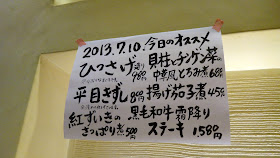 2013.7.10.今日のオススメ
ひっさげ造り 980円
貝柱とチンゲン菜
中華風とろみ煮 680
平目きずし 840
揚げ茄子煮 450
紅ずいきの
さっぱり煮 500円
黒毛和牛霜降り
ステーキ 1580円